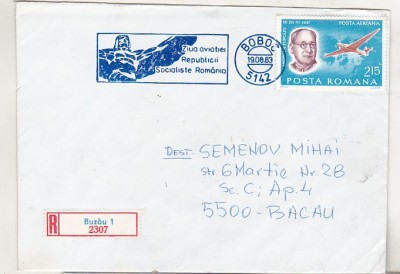 Ziua aviatiei
Republicii
Socialiste România
BOBOC
19.08.83
5142
POSTA AERIANA
POSTA ROMANA
2,15
DEST. SEMENOV MIHAI
str 6 Martie Nr. 28
Sc. C; Ap. 4
5500-BACAU
R
Buzău 1
2307